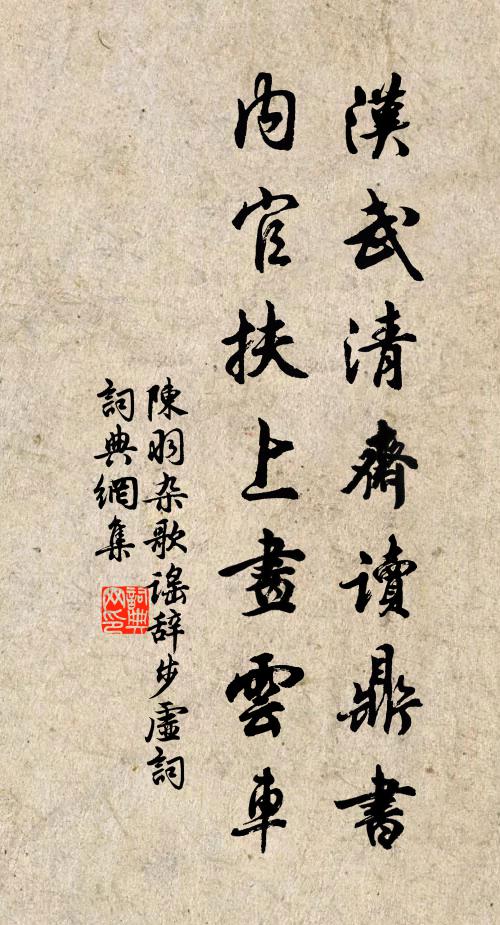 漢武清齋讀鼎書
内官扶上畫雲車
陳羽杂歌謡辞步虛詞
詞典網集
詞典网印